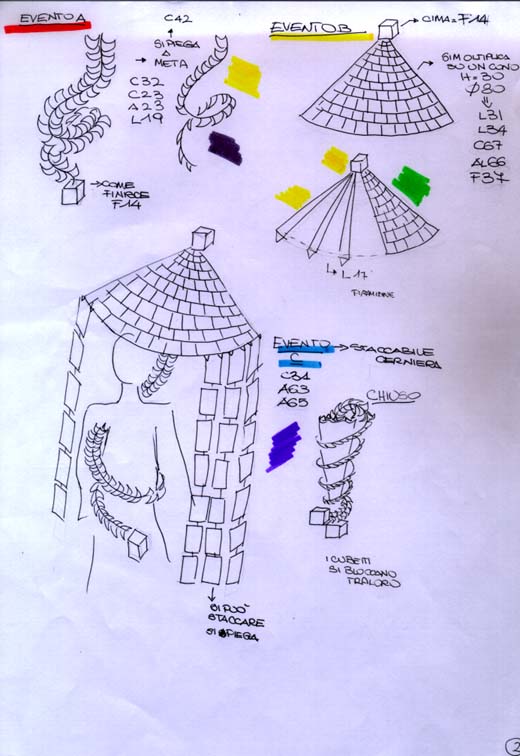 EVENTO A
C42
SI PIEGA
A
METÀ
C32
C23
A23
L19
COME
FINISCE
F14
EVENTO B
CIMA = F14
SI MOLTIPLICA
SU UN CONO
H = 30
Ø 80
L31
L34
C67
AL66
F37
L17
EVENTO
C
STACCABILE
CERNIERA
C34
A63
A65
CHIUSO
I CUBETTI
SI BLOCCANO
TRALORO
SI PUÒ
STACCARE
SI PIEGA
2